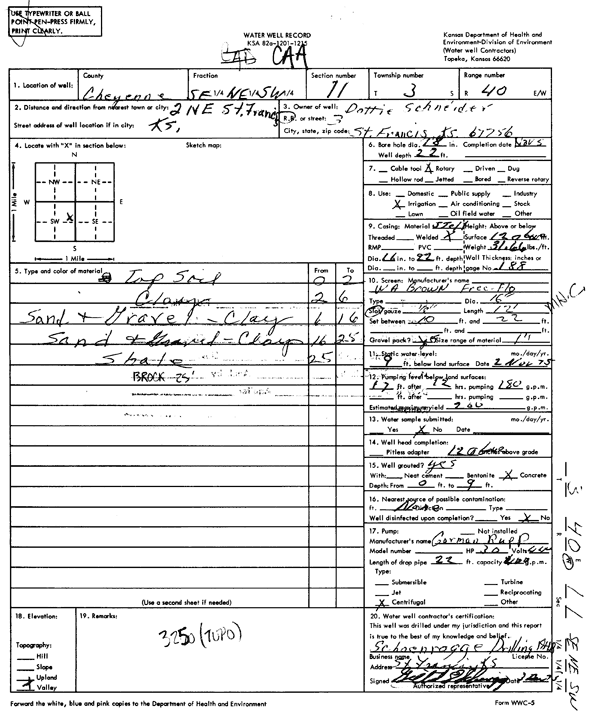 USE TYPEWRITER OR BALL
POINT PEN-PRESS FIRMLY,
PRINT CLEARLY.
WATER WELL RECORD
KSA 82a-1201-1215
CAA
Kansas Department of Health and
Environment-Division of Environment
(Water well Contractors)
Topeka, Kansas 66620
1. Location of well: County Cheyenne Fraction SE 1/4 NE 1/4 SW 1/4 Section number 11 Township number T 3 S Range number R 40 E/W
2. Distance and direction from nearest town or city: 2 NE St. Francis
Street address of well location if in city: KS,
3. Owner of well: Dottie Schneider
R.R. or street: 3
City, state, zip code: St. Francis KS 67756
4. Locate with "X" in section below: Sketch map:
N
NW NE
W E
SW X SE
S
1 Mile
1 Mile
5. Type and color of material From To
Top Soil 0 2
Clay 2 6
Sand + Gravel - Clay 6 16
Sand + Gravel - Clay 16 25
Shale 25
BROCK - 25'
(Use a second sheet if needed)
6. Bore hole dia. in. Completion date
Well depth 22 ft.
7. Cable tool X Rotary Driven Dug
Hollow rod Jetted Bored Reverse rotary
8. Use: Domestic Public supply Industry
X Irrigation Air conditioning Stock
Lawn Oil field water Other
9. Casing: Material Height: Above or below
Threaded Welded X Surface 12 in.
RMP PVC Weight lbs./ft.
Dia. 16 in. to 22 ft. depth Wall Thickness: inches or
Dia. in. to ft. depth gage No. .188
10. Screen: Manufacturer's name
Brown Free-Flo
Type Dia. 16"
Slot/gauze Length
Set between 10 ft. and 22 ft.
ft. and ft.
Gravel pack? yes Size range of material
11. Static water level: mo./day/yr.
9 ft. below land surface Date 2 Nov 75
12. Pumping level below land surfaces:
17 ft. after 12 hrs. pumping 180 g.p.m.
ft. after hrs. pumping g.p.m.
Estimated maximum yield 200 g.p.m.
13. Water sample submitted: mo./day/yr.
Yes X No Date
14. Well head completion:
Pitless adapter 12 Inches above grade
15. Well grouted? yes
With: Neat cement Bentonite X Concrete
Depth: From 0 ft. to 9 ft.
16. Nearest source of possible contamination:
ft. None Type
Well disinfected upon completion? Yes X No
17. Pump: Not installed
Manufacturer's name Gorman Rupp
Model number HP 30 Volts
Length of drop pipe 22 ft. capacity g.p.m.
Type:
Submersible Turbine
Jet Reciprocating
X Centrifugal Other
18. Elevation:
19. Remarks:
3250 (TOPO)
Topography:
Hill
Slope
Upland
Valley
20. Water well contractor's certification:
This well was drilled under my jurisdiction and this report
is true to the best of my knowledge and belief.
Schoenrogge Drilling
Business name License No.
Address St. Francis KS
Signed Date
Authorized representative
Forward the white, blue and pink copies to the Department of Health and Environment
Form WWC-5